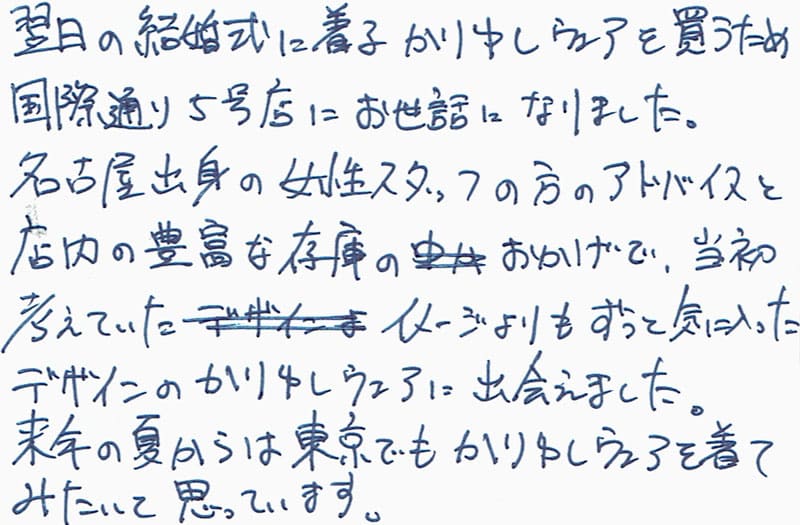 翌日の結婚式に着る かりゆしウェアを買うため
国際通り5号店にお世話になりました。
名古屋出身の女性スタッフの方のアドバイスと
店内の豊富な存庫の おかげで、当初
考えていた デザインよ イメージよりもずっと気に入った
デザインのかりゆしウェアに出会えました。
来年の夏からは東京でもかりゆしウェアを着て
みたいと思っています。